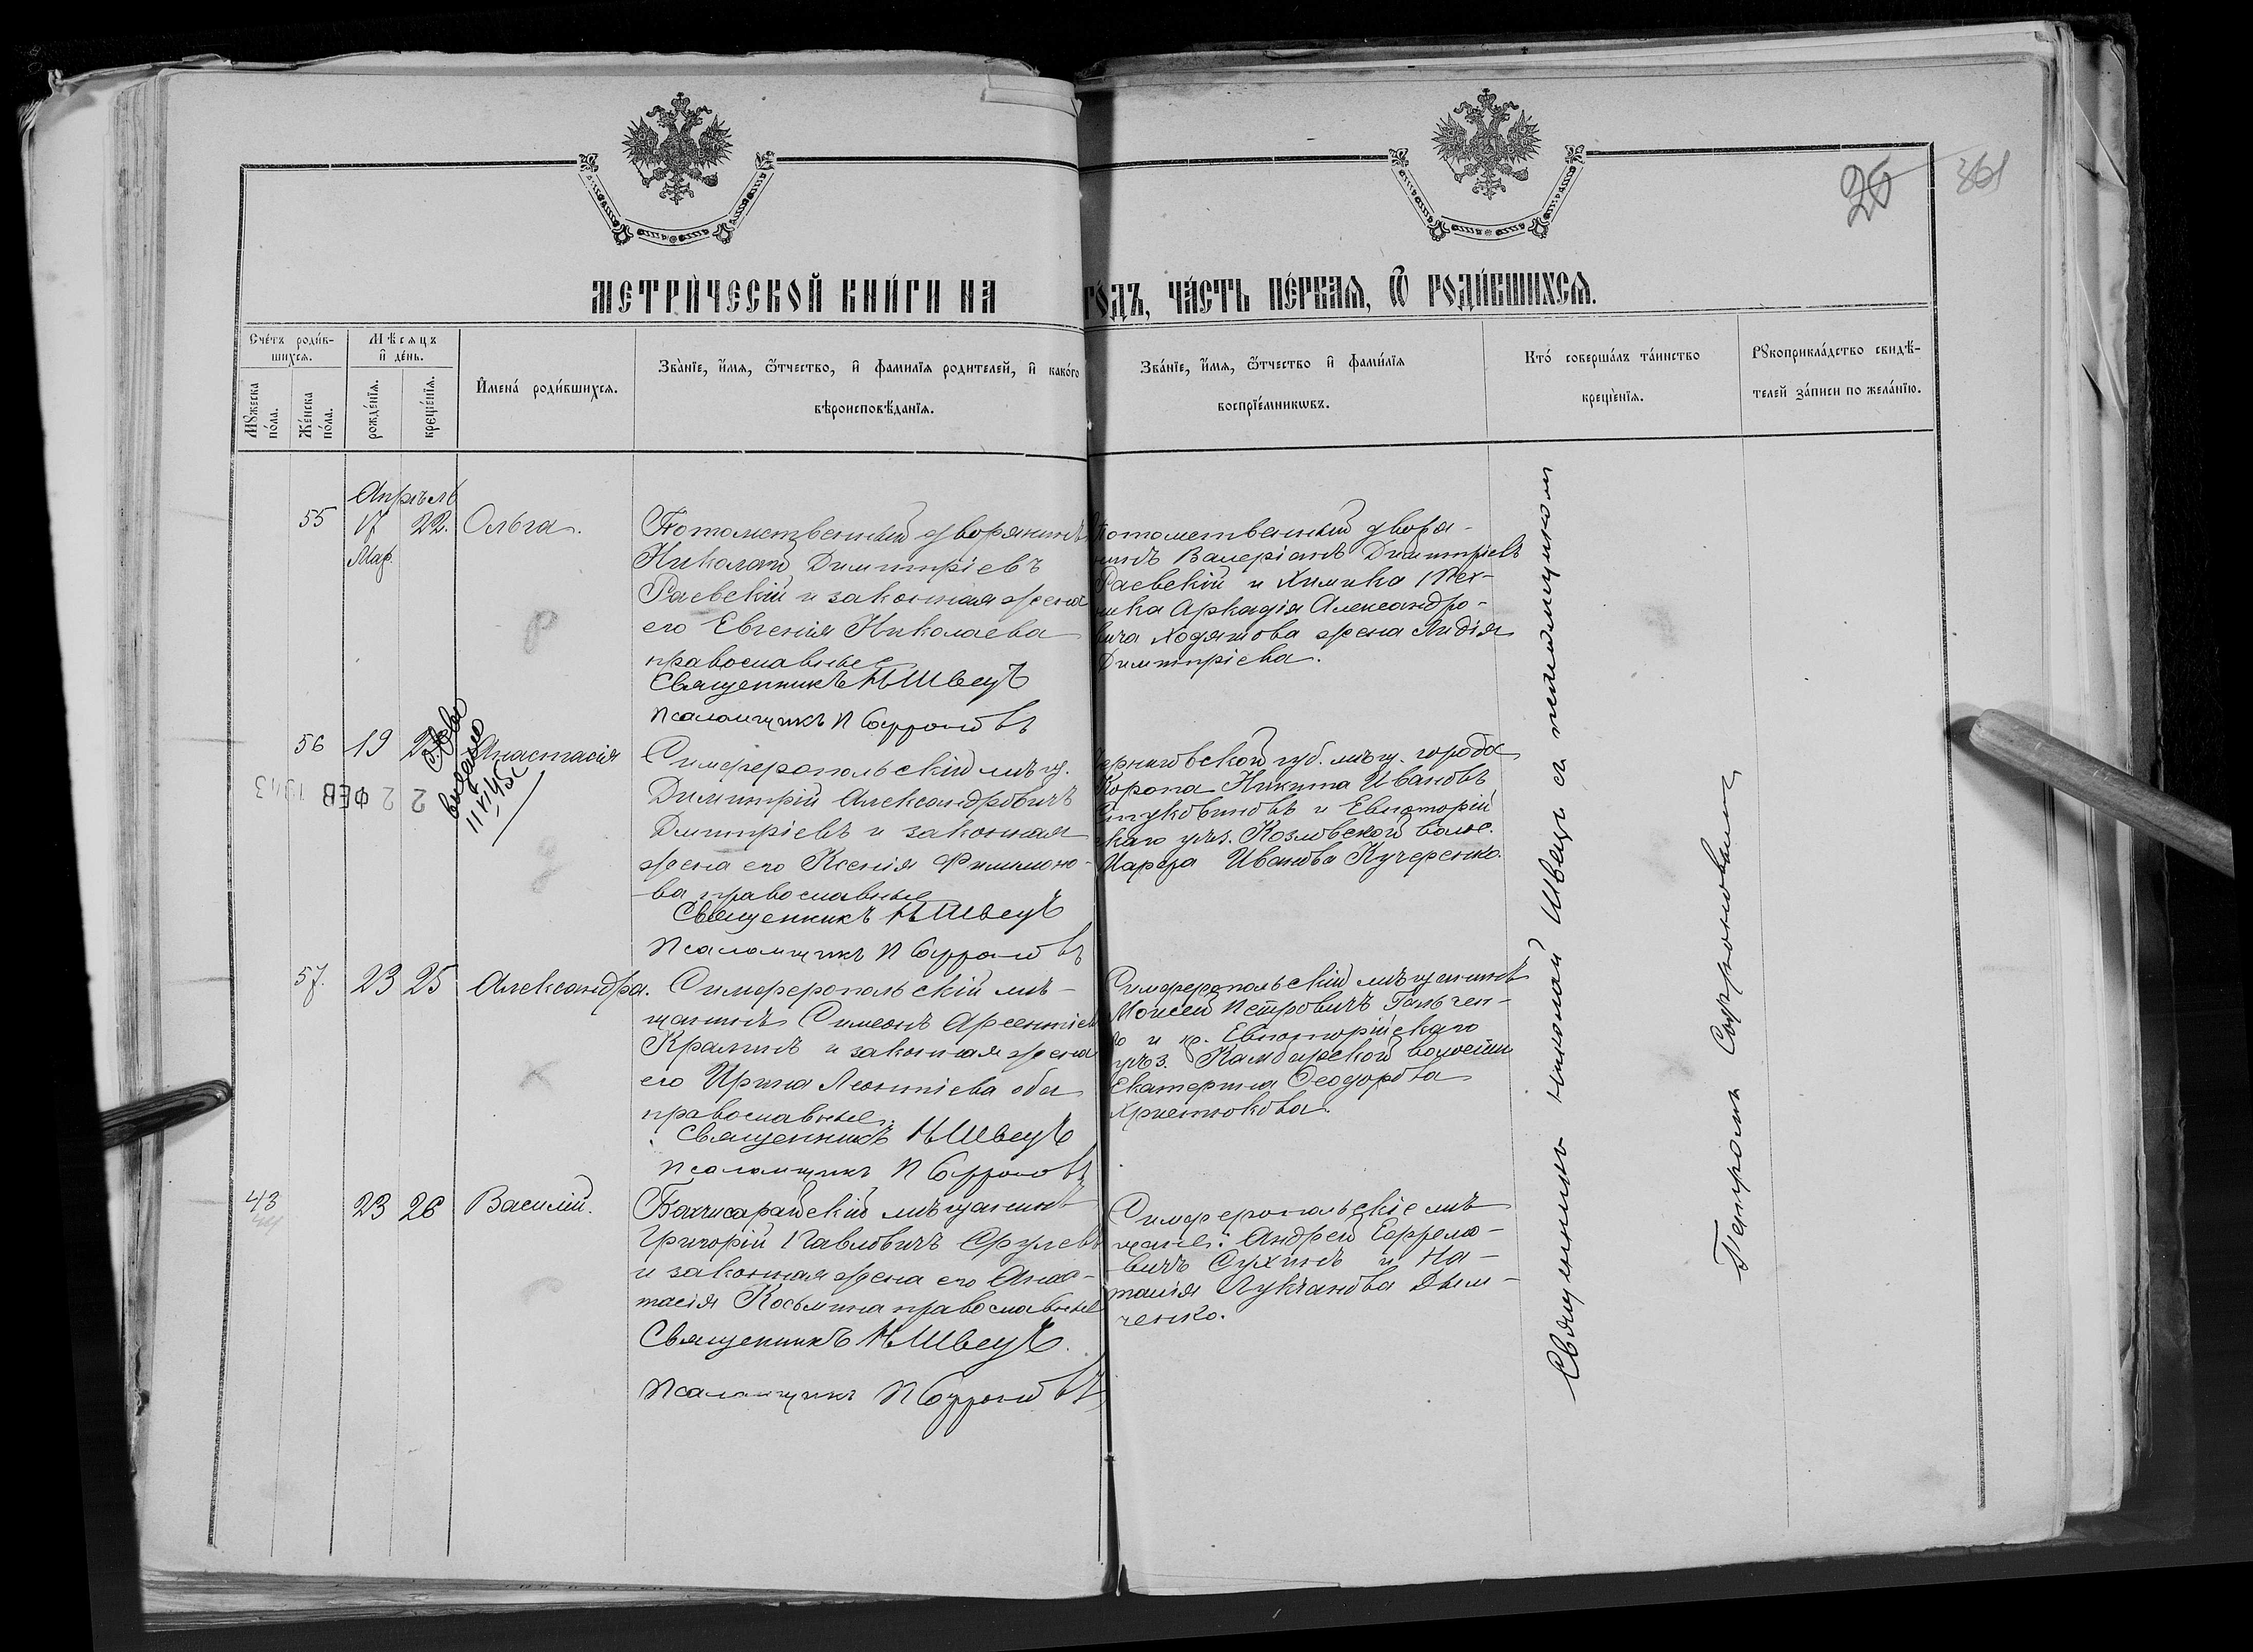 26 361
МЕТРИЧЕСКОЙ КНИГИ НА ГОДЪ, ЧАСТЬ ПЕРВАЯ, Ѿ РОДИВШИХСЯ.
Счетъ родив-
шихся.
Мѣсяцъ
и день.
Мужеска
пола.
Женска
пола.
рожденїя.
крещенїя.
Имена родившихся.
Званїе, имя, ѿтчество, и фамилїя родителей, и какого
вѣроисповѣданїя.
Званїе, имя, ѿтчество и фамилїя
воспрїемникѡвъ.
Кто совершалъ таинство
крещенїя.
Рукоприкладство свидѣ-
телей записи по желанїю.
Апрѣль
55 17 22. Ольга.
Мар.
Потомственный дворянинъ
Николай Димитріевъ
Раевскій и законная жена
его Евгенія Николаева
православные
Священникъ Н Швецъ
Псаломщикъ П Софроновъ
Потомственный дворя-
нинъ Валеріанъ Димитріевъ
Раевскій и Химика Тех-
ника Аркадія Александро-
вича Ходятова жена Лидія
Димитріева.
56 19 Анастасія
выдано
2 2 ФЕВ 1913
Симферопольскій мѣщ.
Димитрій Александровичъ
Димитріевъ и законная
жена его Ксенія Филимоно-
ва православные
Священникъ Н Швецъ
Псаломщикъ П Софроновъ
Черниговской губ. мѣщ. города
Коропа Никита Ивановъ
и Евпаторій
скаго уѣз. Козловской волос.
Марфа Иванова Кучеренко.
57. 23 25 Александра.
Симферопольскій мѣ-
щанинъ Симеонъ Арсентіевъ
Краминъ и законная жена
его Ирина Леонтіева оба
православные.
Священникъ Н Швецъ
Псаломщикъ П Софроновъ
Симферопольскій мѣщанинъ
Моисей Петровичъ Гальчен-
и кр. Евпаторійскаго
уѣз. Камбарской волости
Екатерина Ѳеодорова
Христюкова.
43 23 26 Василій.
Бахчисарайскій мѣщанинъ
Григорій Павловичъ
и законная жена его Анас-
тасія Косьмина православные
Священникъ Н Швецъ.
Псаломщикъ П Софроновъ
Симферопольскіе мѣ
щане: Андрей Ефремо-
вичъ Сухинъ и На-
талія Лукіанова Дым-
ченко.
Священникъ Николай Швецъ съ псаломщикомъ
Петромъ Софроновымъ